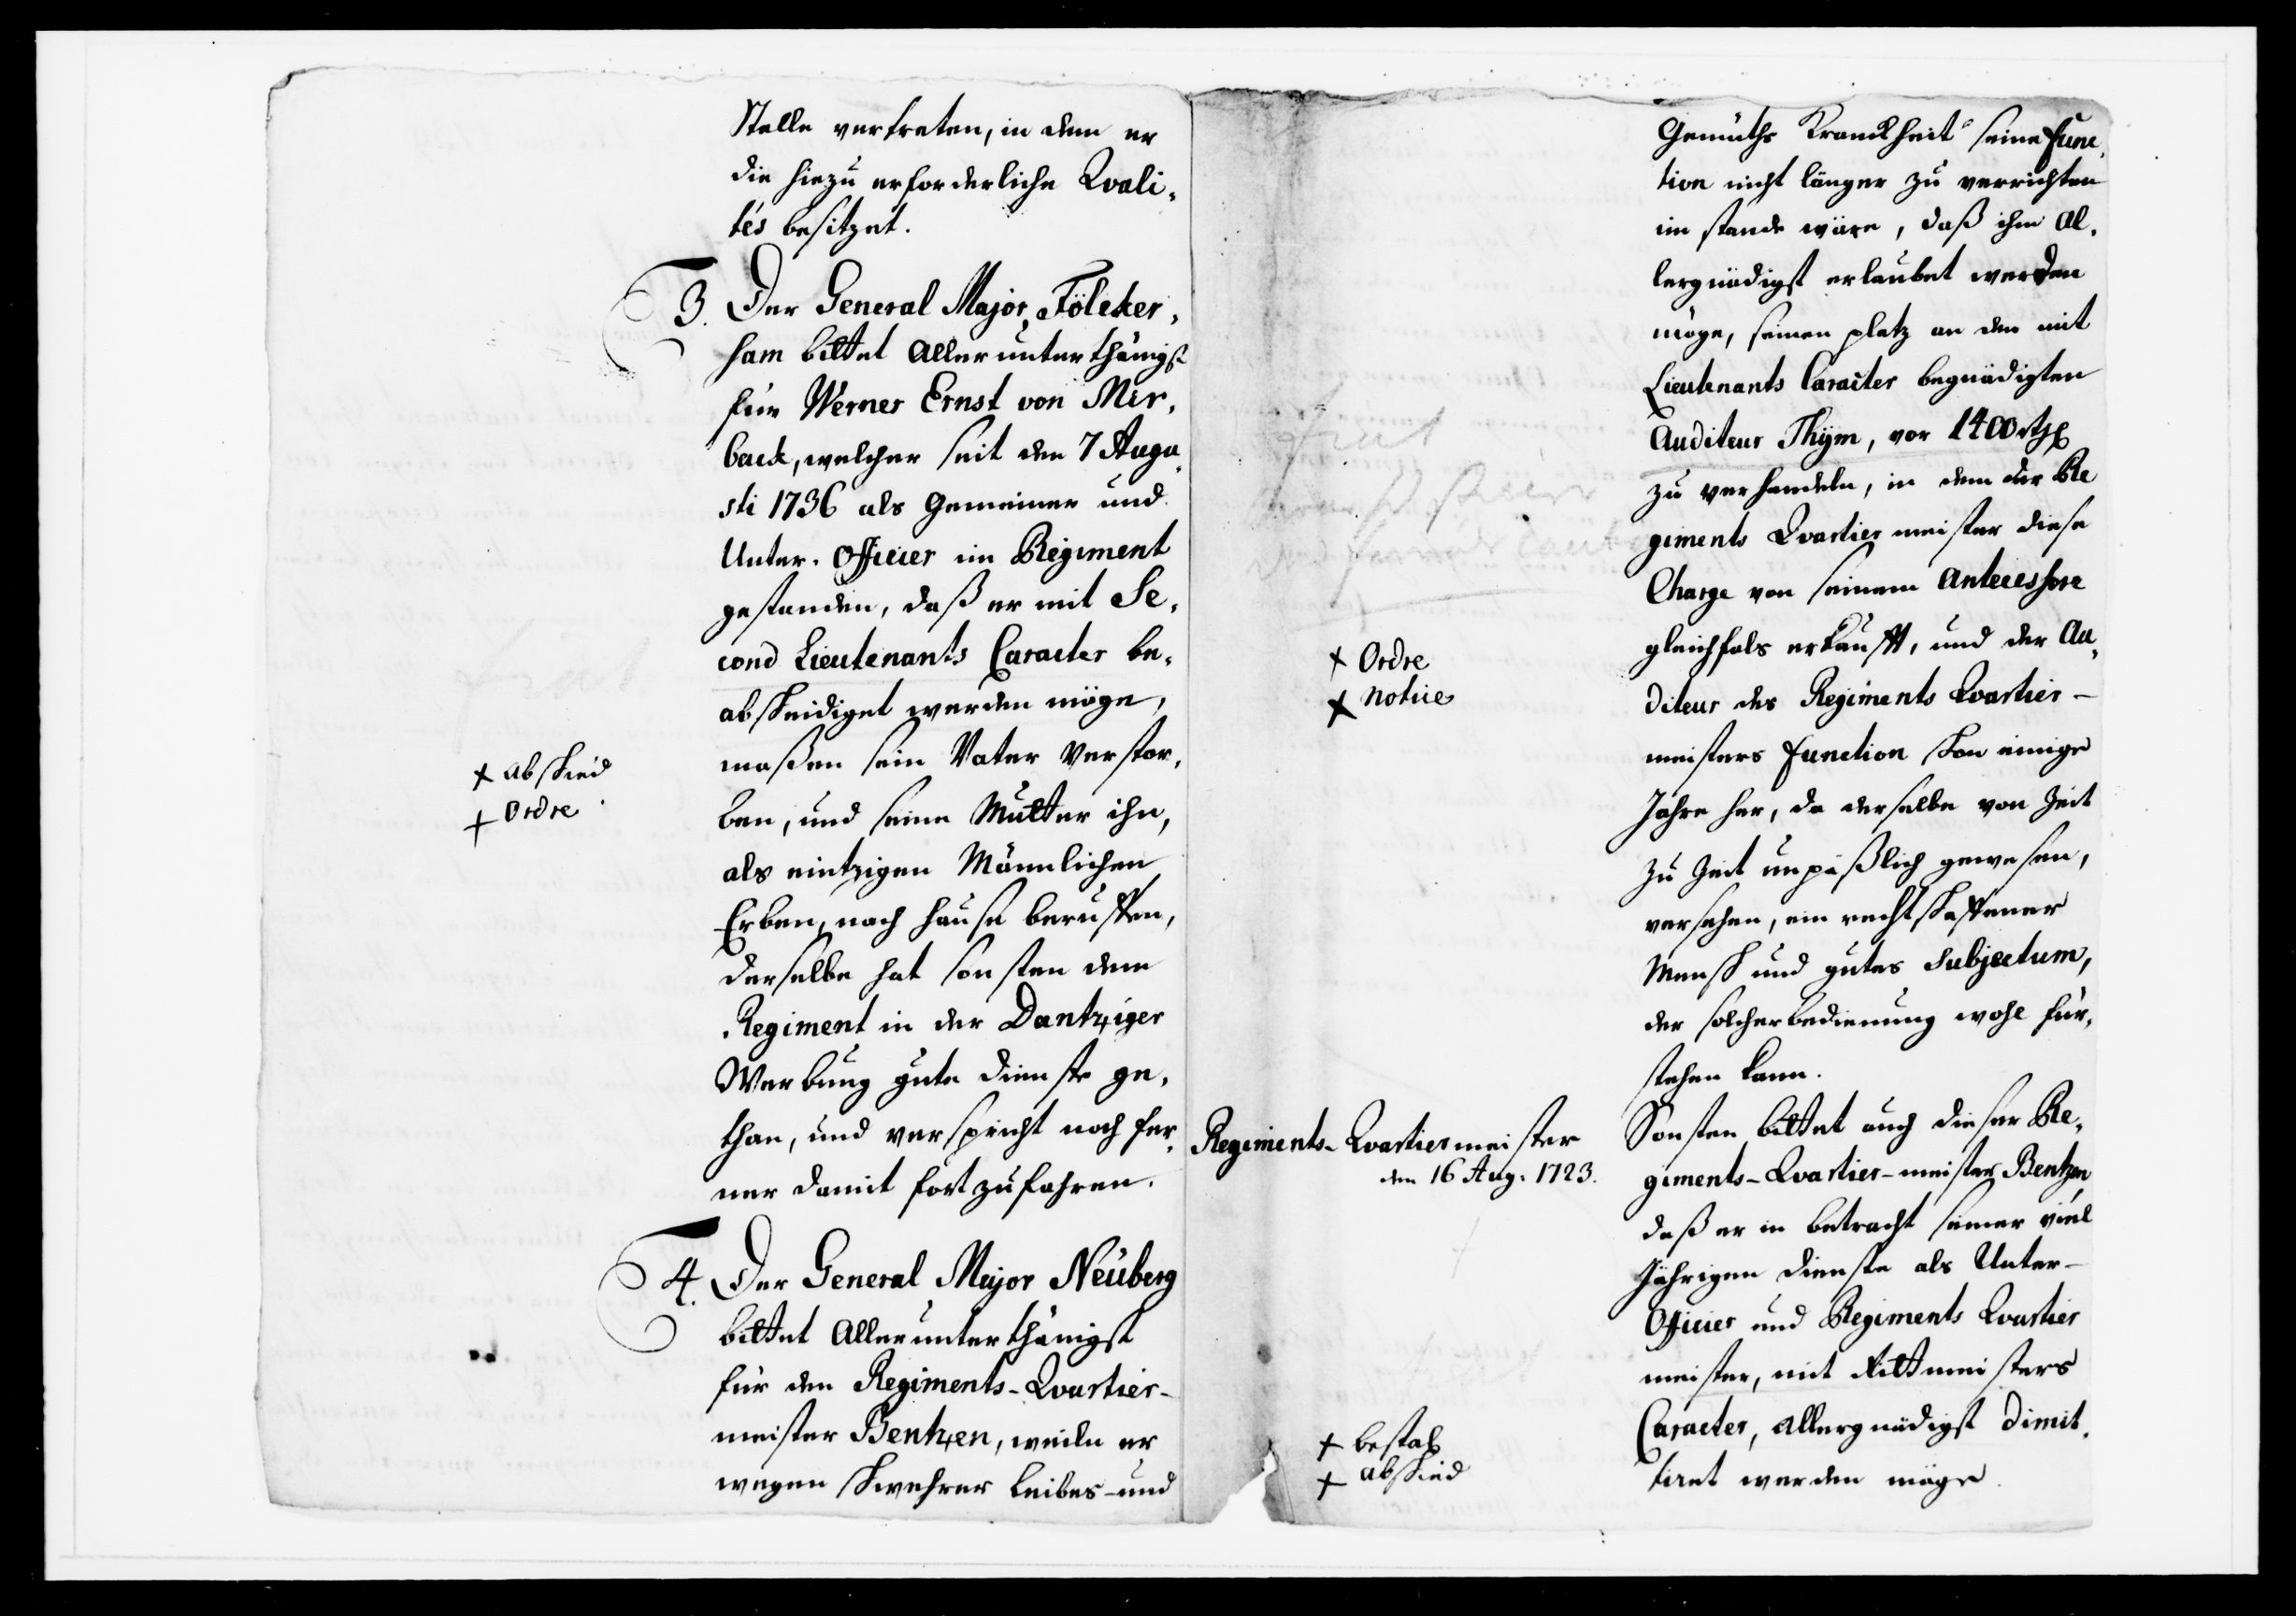 Stelle vertreten, in dem er
die hiezu erforderliche Qvali-
tés besitzet.
3. Der General Major Fölcker-
sam bittet Allerunterthänigst
für Werner Ernst von Mir-
back, welcher seit den 7 Augu-
sti 1736 als Gemeiner und
Unter-Officier im Regiment
gestanden, daß er mit Se-
cond Lieutenants Caracter be-
abscheidiget werden möge,
maßen sein Vater verstor-
ben, und seine Mutter ihn,
als eintzigen Männlichen
Erben, nach hause beruffen,
derselbe hat sonsten dem
Regiment in der Dantziger
Werbung gute dienste ge-
than, und verspricht noch fer-
ner damit fortzufahren.
+ abschied
+ Ordre
4. Der General Major Neüberg
bittet Allerunterthänigst
für den Regiments-Qvartier-
meister Bentzen, weiln er
wegen schwehrer Leibes- und
Gemüths Kranckheit seine func-
tion nicht länger zu verrichten
im stande wäre, daß ihm Al-
lergnädigst erlaubet werden
möge, seinen platz an den mit
Lieutenants Caracter begnädigten
Auditeur Thÿm, vor 1400 rthlr
zu verhandeln, in dem der Re
giments Qvartiermeister diese
Charge von seinem Antecessore
gleichfals erkaufft, und der Au-
diteur des Regiments Qvartier-
meisters function schon einige
Jahre her, da derselbe von Zeit
zu Zeit unpäßlich gewesen,
versehen, ein rechtschaffener
Mensch und gutes Subjectum,
der solcher bedienung wohl für-
stehen kann.
+ Ordre
+ Notice
Sonsten bittet auch dieser Re-
giments-Qvartier-meister Bentzen
daß er in betracht seiner viel
Jährigen dienste als Unter-
Officier und Regiments Qvartier
meister, mit Rittmeisters
Caracter, allergnädigst dimit-
tiret werden möge.
Regiments-Qvartiermeister
den 16 Aug: 1723.
+ bestal
+ abschied